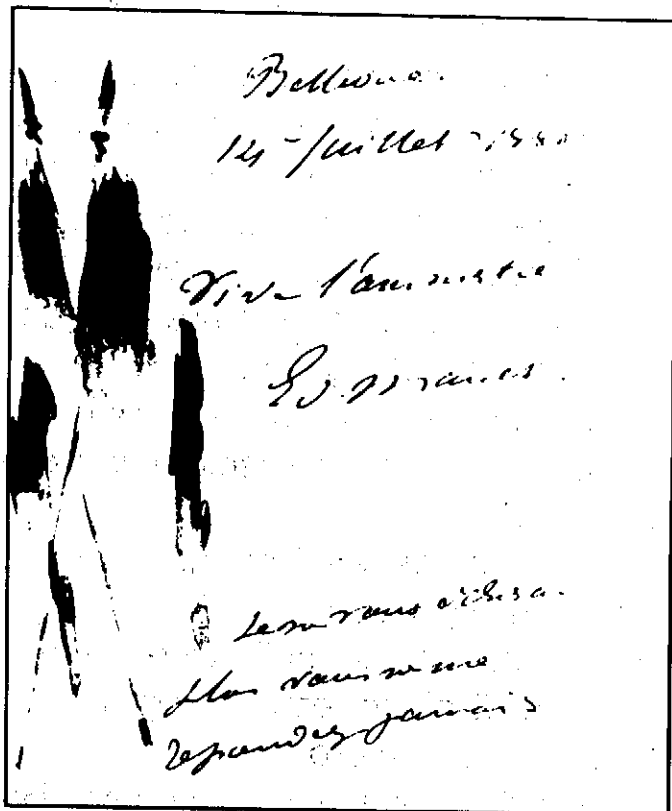 Bellevue.
14 juillet 1880
Vive l'amnistie
Ed Manet.
Je ne vous
plus vous ne me
repondez jamais